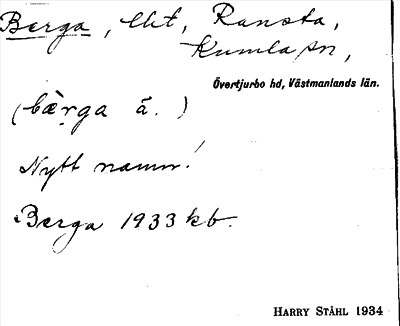 Berga, lht, Ransta,
Kumla sn,
Övertjurbo hd, Västmanlands län.
(bæ̀rga ä.)
Nytt namn!
Berga 1933 kb.
HARRY STÅHL 1934